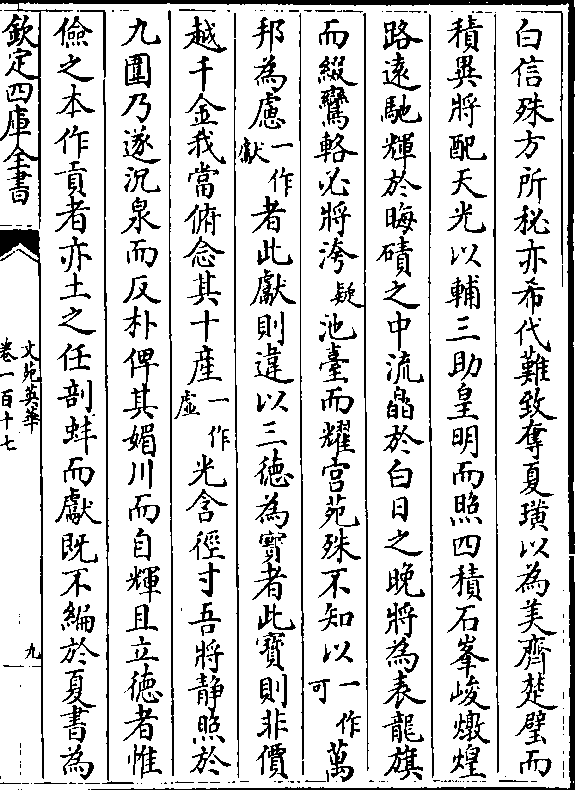 白信殊方所秘亦希代難致奪夏璜以為美齊楚璧而
積異將配天光以輔三助皇明而照四積石峯峻燉煌
路遠馳輝於晦磧之中流皛於白日之晚將為表龍旗
而綴鸞輅必將洿疑池臺而耀宫苑殊不知以一作可萬
邦為慮一作獻者此獻則違以三徳為寳者此寳則非價
越千金我當俯念其十産一作虚光含徑寸吾將静照於
九圍乃遂沉泉而反朴俾其媚川而自輝且立徳者惟
儉之本作貢者亦土之任剖蚌而獻既不編於夏書為
欽定四庫全書
文苑英華
卷一百十七
九